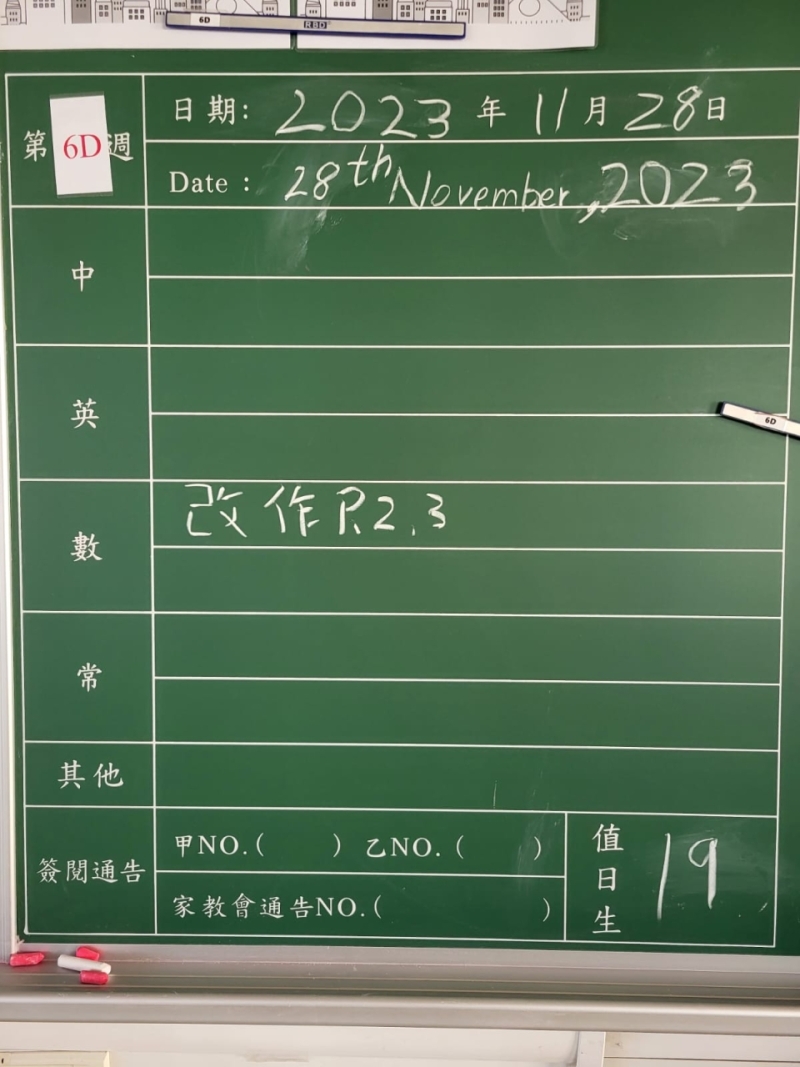 6D RBD
第 6D 週
日期: 2023 年 11 月 28 日
Date : 28th November, 2023
中
英
6D
數 改作 P.2, 3
常
其他
簽閱通告
甲NO.( ) 乙NO.( )
家教會通告NO.( )
值日生 19